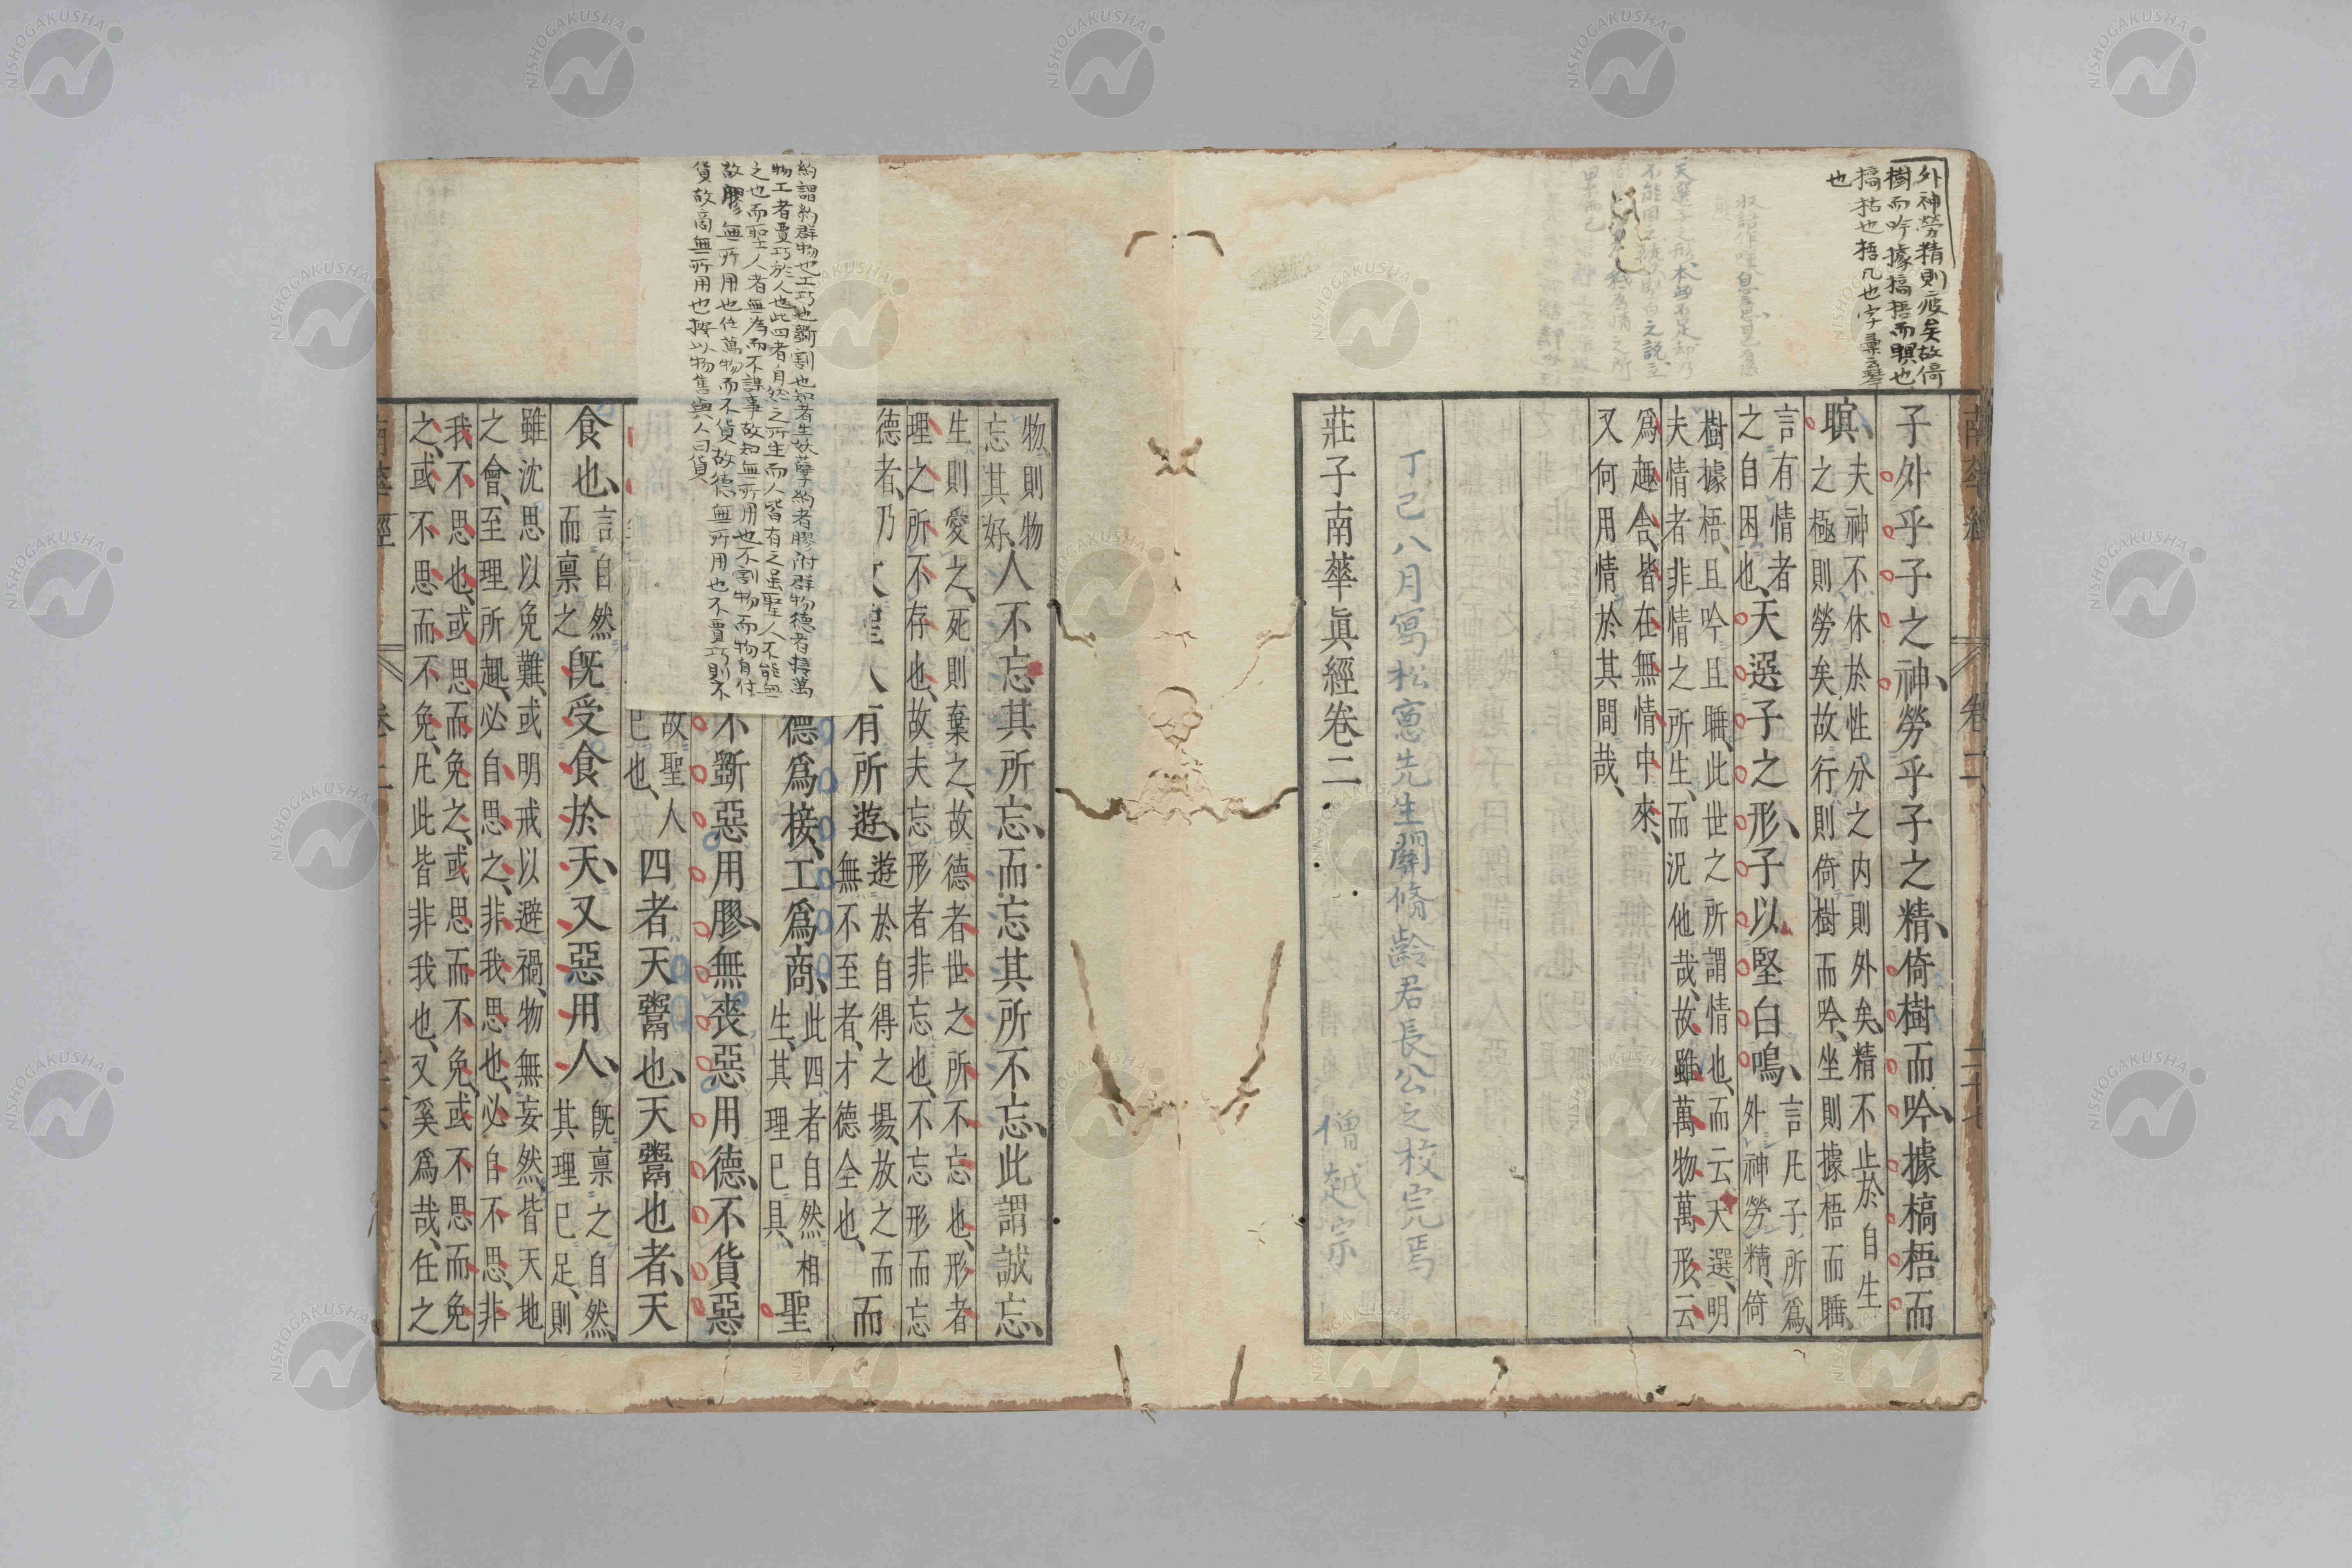 外神勞精則疲矣故倚
樹而吟據槁梧而瞑也
槁枯也梧几也字彙云琴
也
子外乎子之神、勞乎子之精、倚樹而吟、據槁梧而
瞑、夫神不休於性分之内則外矣、精不止於自生
之極則勞矣故行則倚樹而吟、坐則據梧而睡、
言有情者
之自困也、天選子之形、子以堅白鳴、言凡子所爲
外神勞精、倚
樹據梧、且吟且睡、此世之所謂情也、而云天選、明
夫情者非情之所生、而況他哉、故雖萬物萬形、云
爲趣舍、皆在無情中來、
又何用情於其間哉、
丁巳八月寫松窓先生關脩齡君長公之校完焉
莊子南華眞經卷二
僧越宗
物、則物
忘其好、人不忘其所忘、而忘其所不忘、此謂誠忘、
生則愛之、死則棄之、故德者世之所不忘也、形者
理之所不存也、故夫忘形者非忘也、不忘形而忘
德者、乃
有所遊、遊於自得之場、放之而
無不至者、才德全也、而
德爲接、工爲商、此四者自然相
生、其理已具、聖
不斵惡用膠、無喪惡用德、不貨惡
故聖人
已也、四者天鬻也、天鬻也者、天
食也、言自然
而禀之既受食於天、又惡用人、既禀之自然、
其理已足、則
雖沈思以免難、或明戒以避禍、物無妄然、皆天地
之會、至理所趣、必自思之、非我思也、必自不思、非
我不思也、或思而免之、或思而不免、或不思而免
之、或不思而不免、凡此皆非我也、又奚爲哉、任之
約謂約群物也工巧也斵割也知者生妖孽約者膠附群物德者接萬
物工者賈巧於人也此四者自然之所生而人皆有之虽聖人不能無
之也而聖人者無為而不謀事故知無所用也不割物而物自付
故膠無所用也任萬物而不貨故德無所用也不賈巧則不
貨故商無所用也按以物售與人曰貨
NISHOGAKUSHA